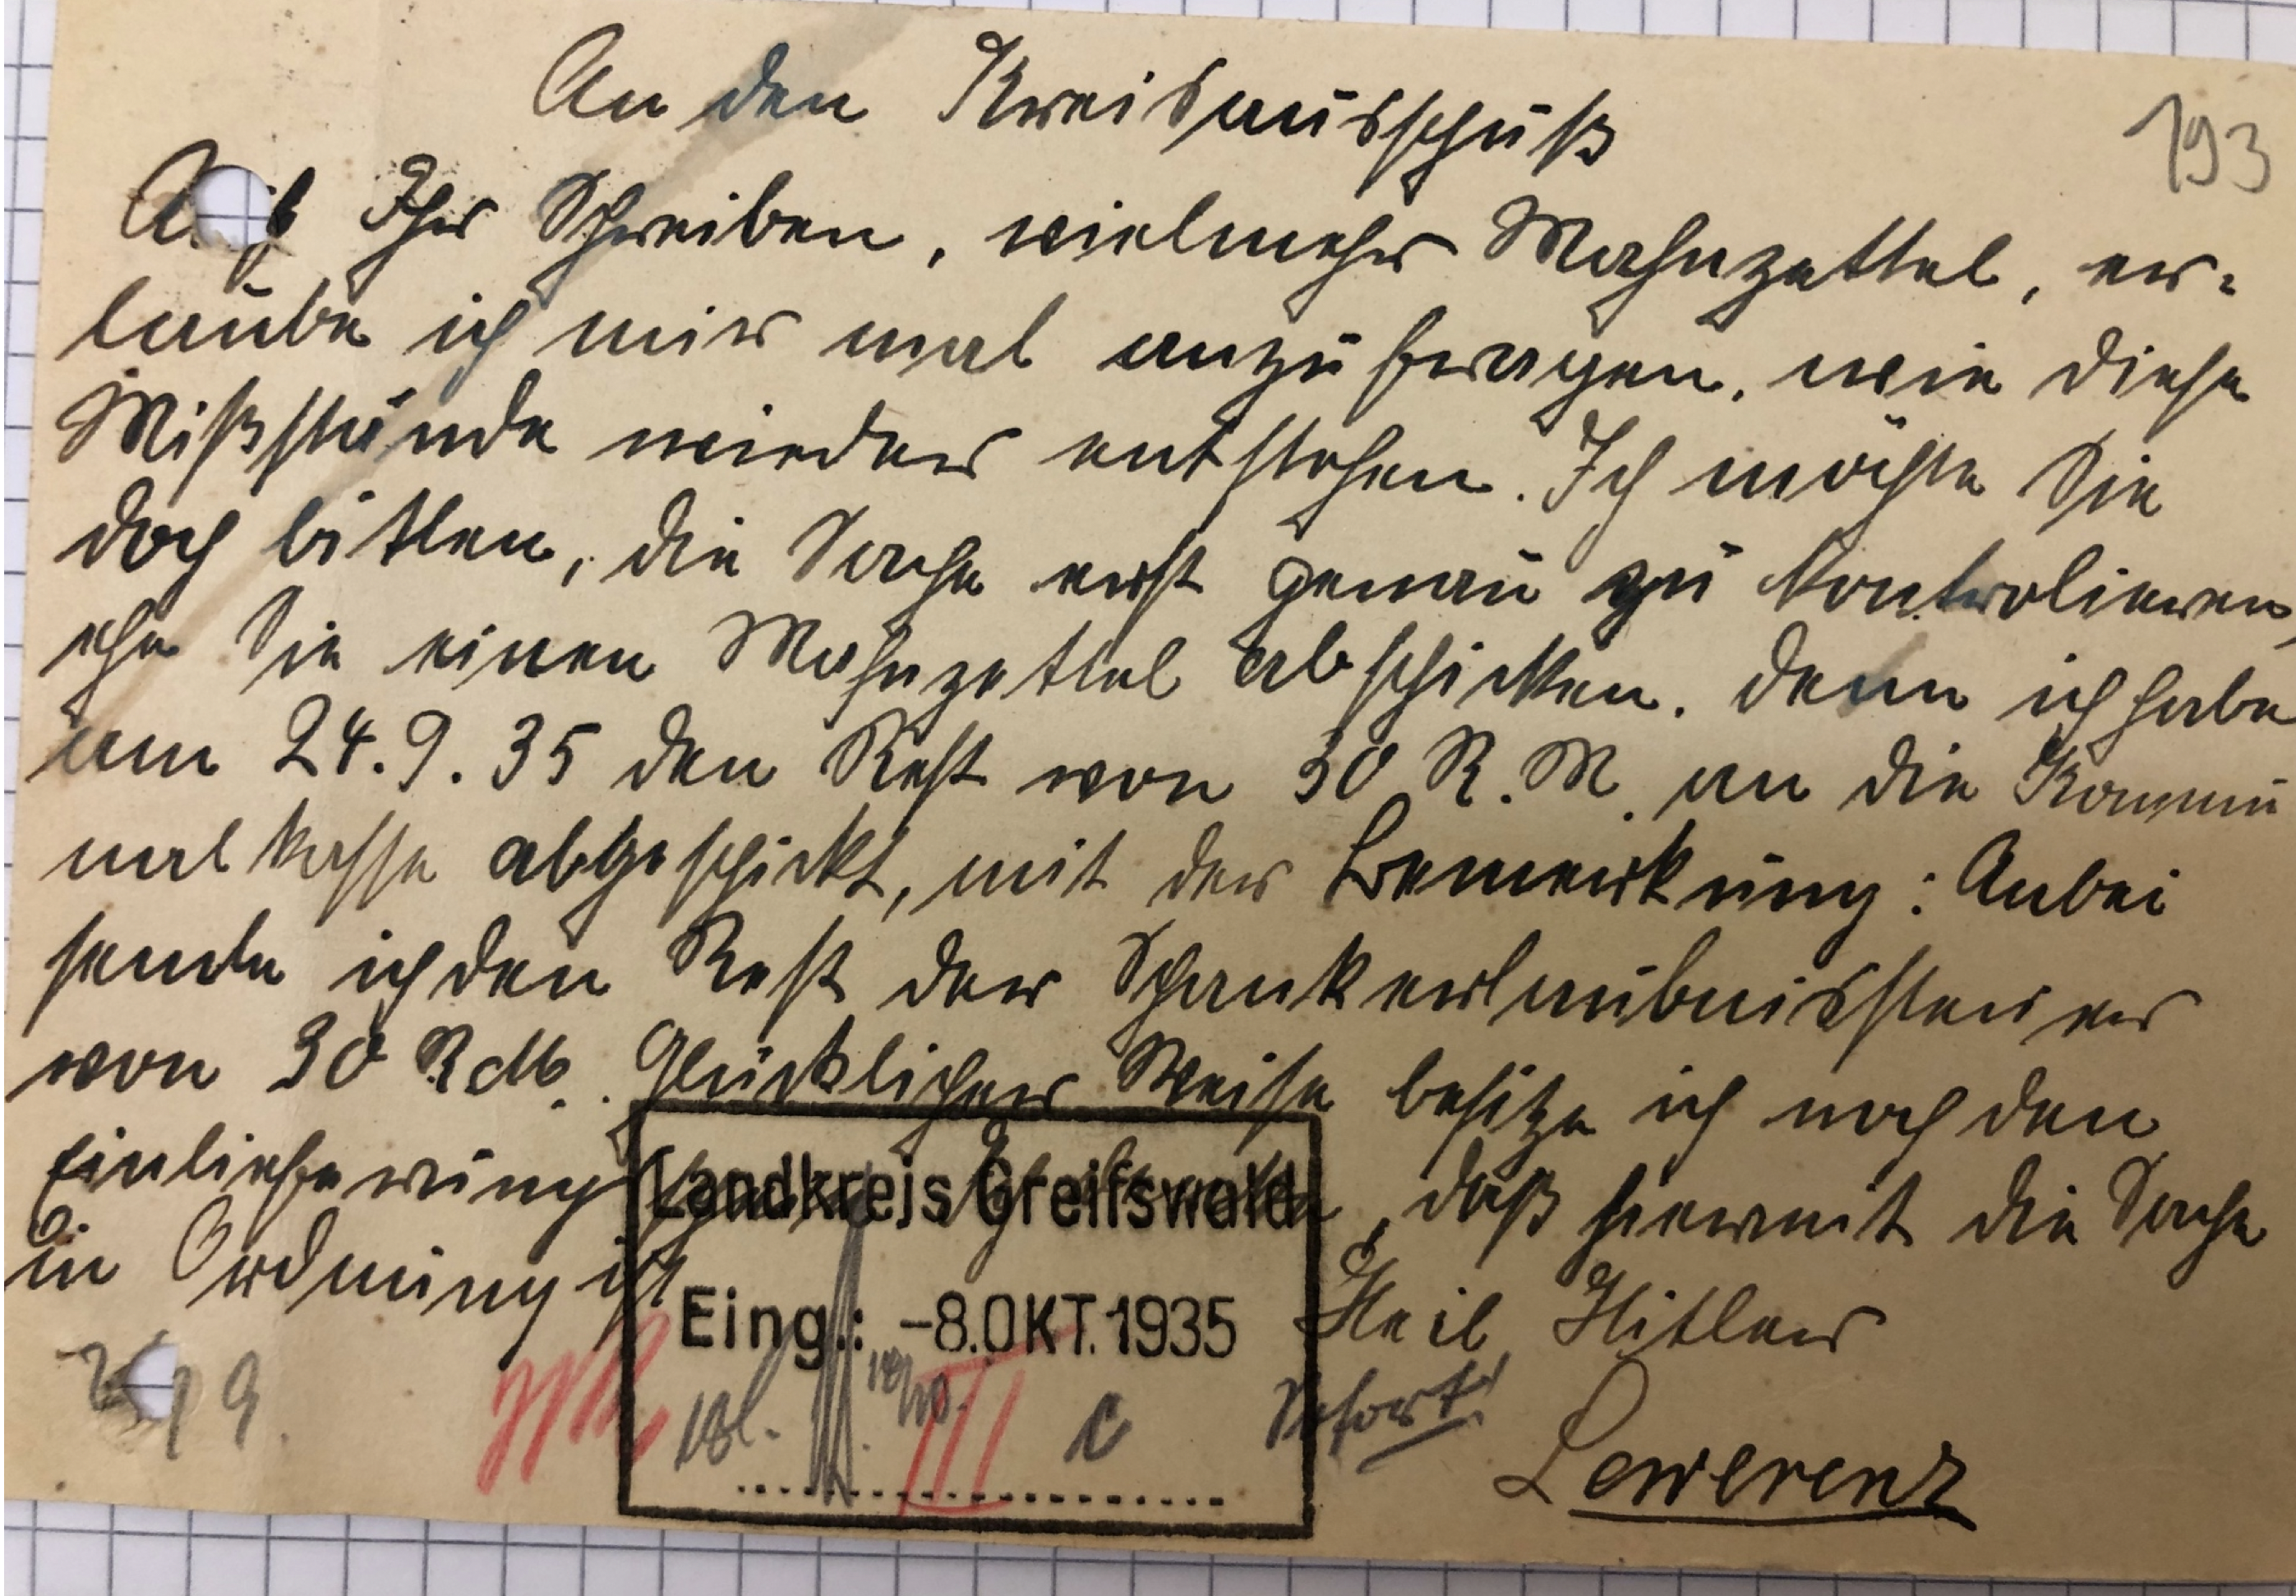 An den Kreisausschuß
193
Auf Ihr Schreiben, vielmehr Mahnzettel, er-
laube ich mir mal anzufragen, wie diese
Mißstände wieder entstehen. Ich möchte Sie
doch bitten, die Sache erst genau zu kontrolieren,
ehe Sie einen Mahnzettel abschicken. Denn ich habe
am 24.9.35 den Rest von 30 R.M. an die Kommu
nalkasse abgeschickt, mit der Bemerkung: Anbei
sende ich den Rest der Schankerlaubnissteuer
von 30 RM. Glücklicher Weise besitze ich noch den
Einlieferungsschein, daß hiermit die Sache
in Ordnung ist.
Heil Hitler
Lewerenz
Landkreis Greifswald
Eing.: -8.OKT.1935
III c
Sofort!